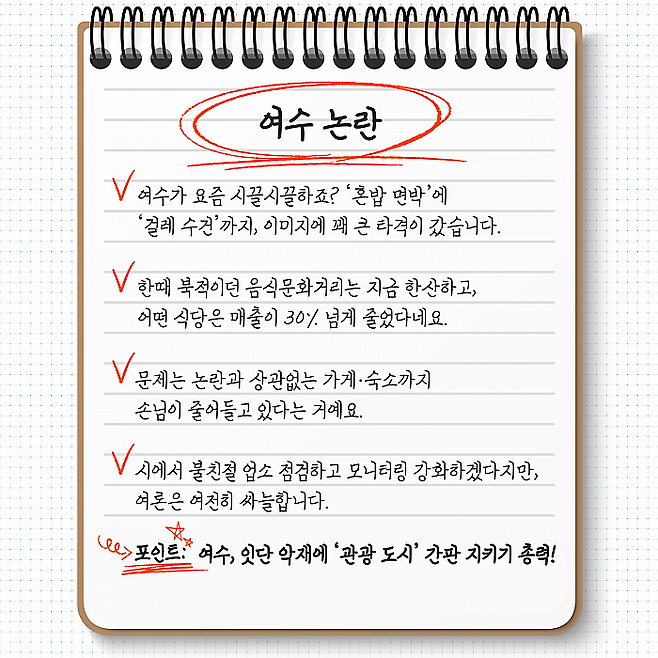 여수 논란
여수가 요즘 시끌시끌하죠? ‘혼밥 면박’에
‘걸레 수건’까지, 이미지에 꽤 큰 타격이 갔습니다.
한때 북적이던 음식문화거리는 지금 한산하고,
어떤 식당은 매출이 30% 넘게 줄었다네요.
문제는 논란과 상관없는 가게·숙소까지
손님이 줄어들고 있다는 거예요.
시에서 불친절 업소 점검하고 모니터링 강화하겠다지만,
여론은 여전히 싸늘합니다.
포인트: 여수, 잇단 악재에 ‘관광 도시’ 간판 지키기 총력!